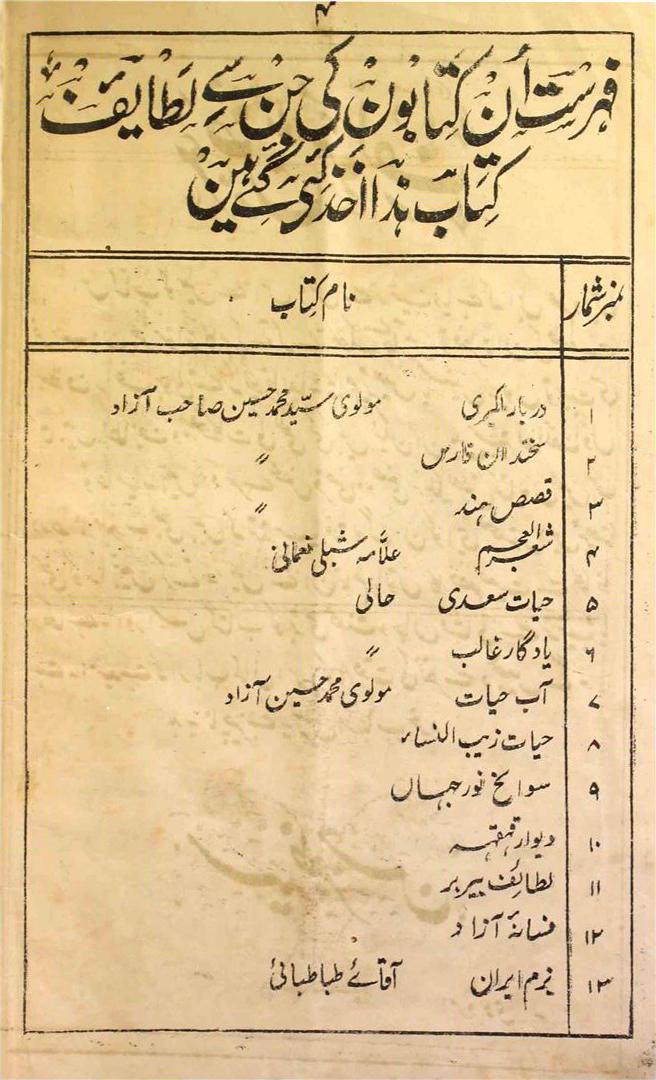 ۴
فہرست اُن کتابون کی جن سے لطایف
کتاب ہذا اخذ کئے گئے ہین
نمبر شمار نام کتاب
۱ دربار اکبری مولوی سیّد محمد حسین صاحب آزاد
۲ سخندان فارس 〃
۳ قصص ہند 〃
۴ شعر العجم علّامہ شبلی نعمانی
۵ حیات سعدی حالی
۶ یادگار غالب 〃
۷ آب حیات مولوی محمد حسین آزاد
۸ حیات زیب النساء
۹ سوانح نور جہاں
۱۰ دیوار قہقہہ
۱۱ لطائف بیربر
۱۲ فسانۂ آزاد
۱۳ بزم ایران آقائے طباطبائی